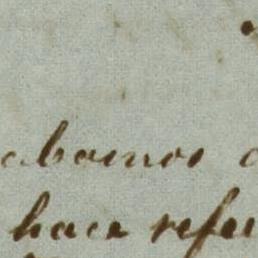 abamos
hace refe